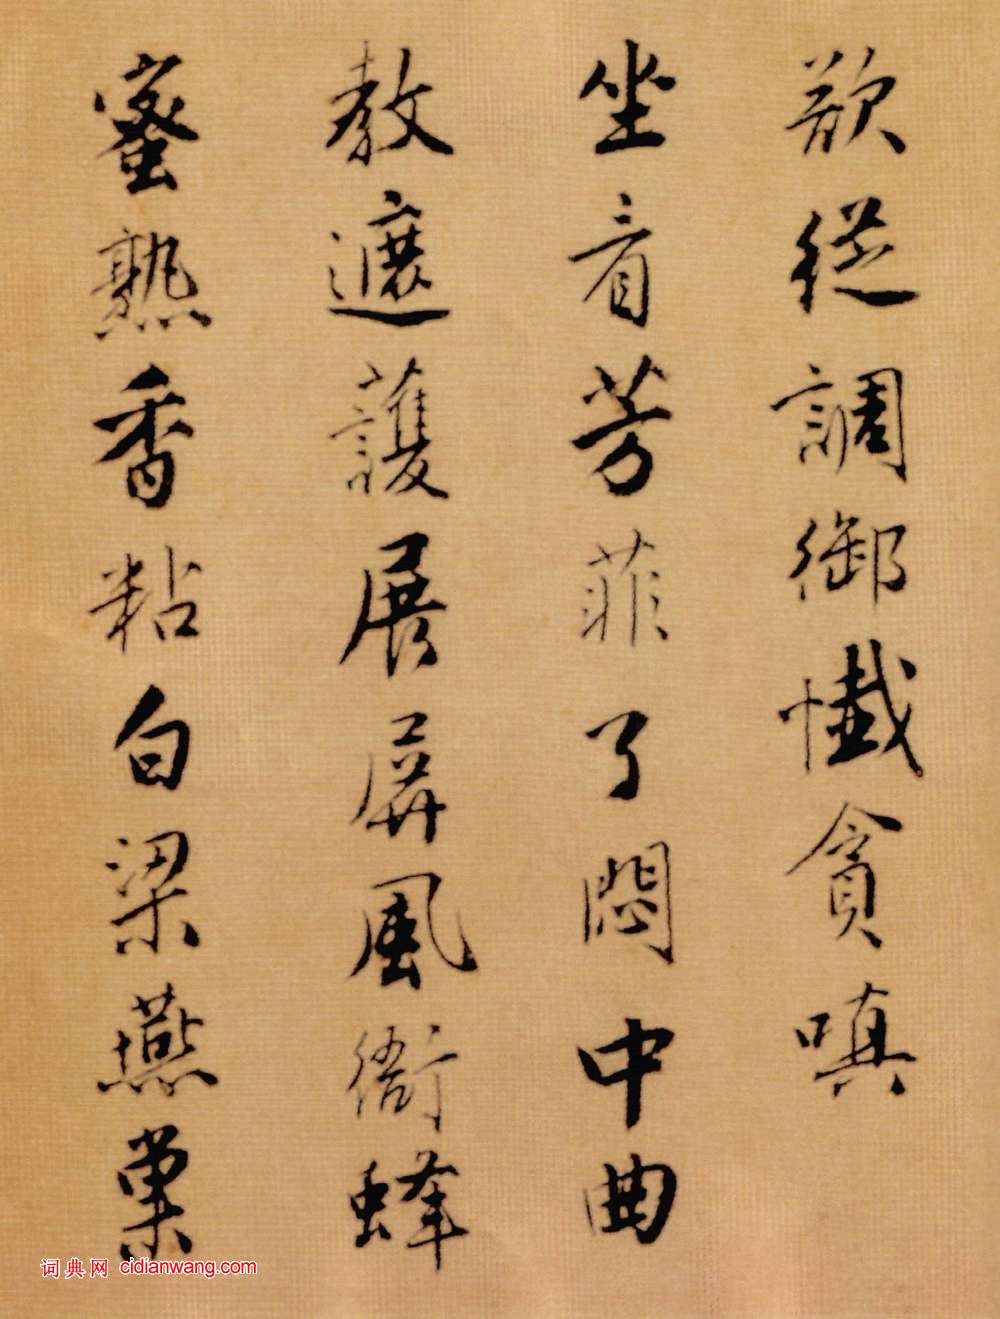 欲從調御懺貪嗔
坐看芳菲了悶中曲
教遮護展屏風衙蜂
蜜熟香粘白梁燕巢
词典网 cidianwang.com